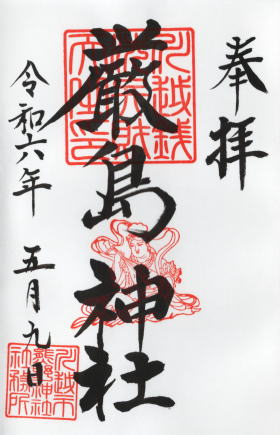 奉拝
厳島神社
令和六年 五月九日
川越市
熊野神社
社務所